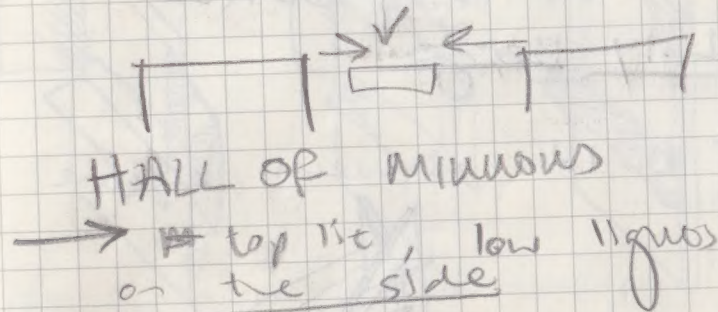 HALL OF MIRRORS
top lit, low lights
on the side